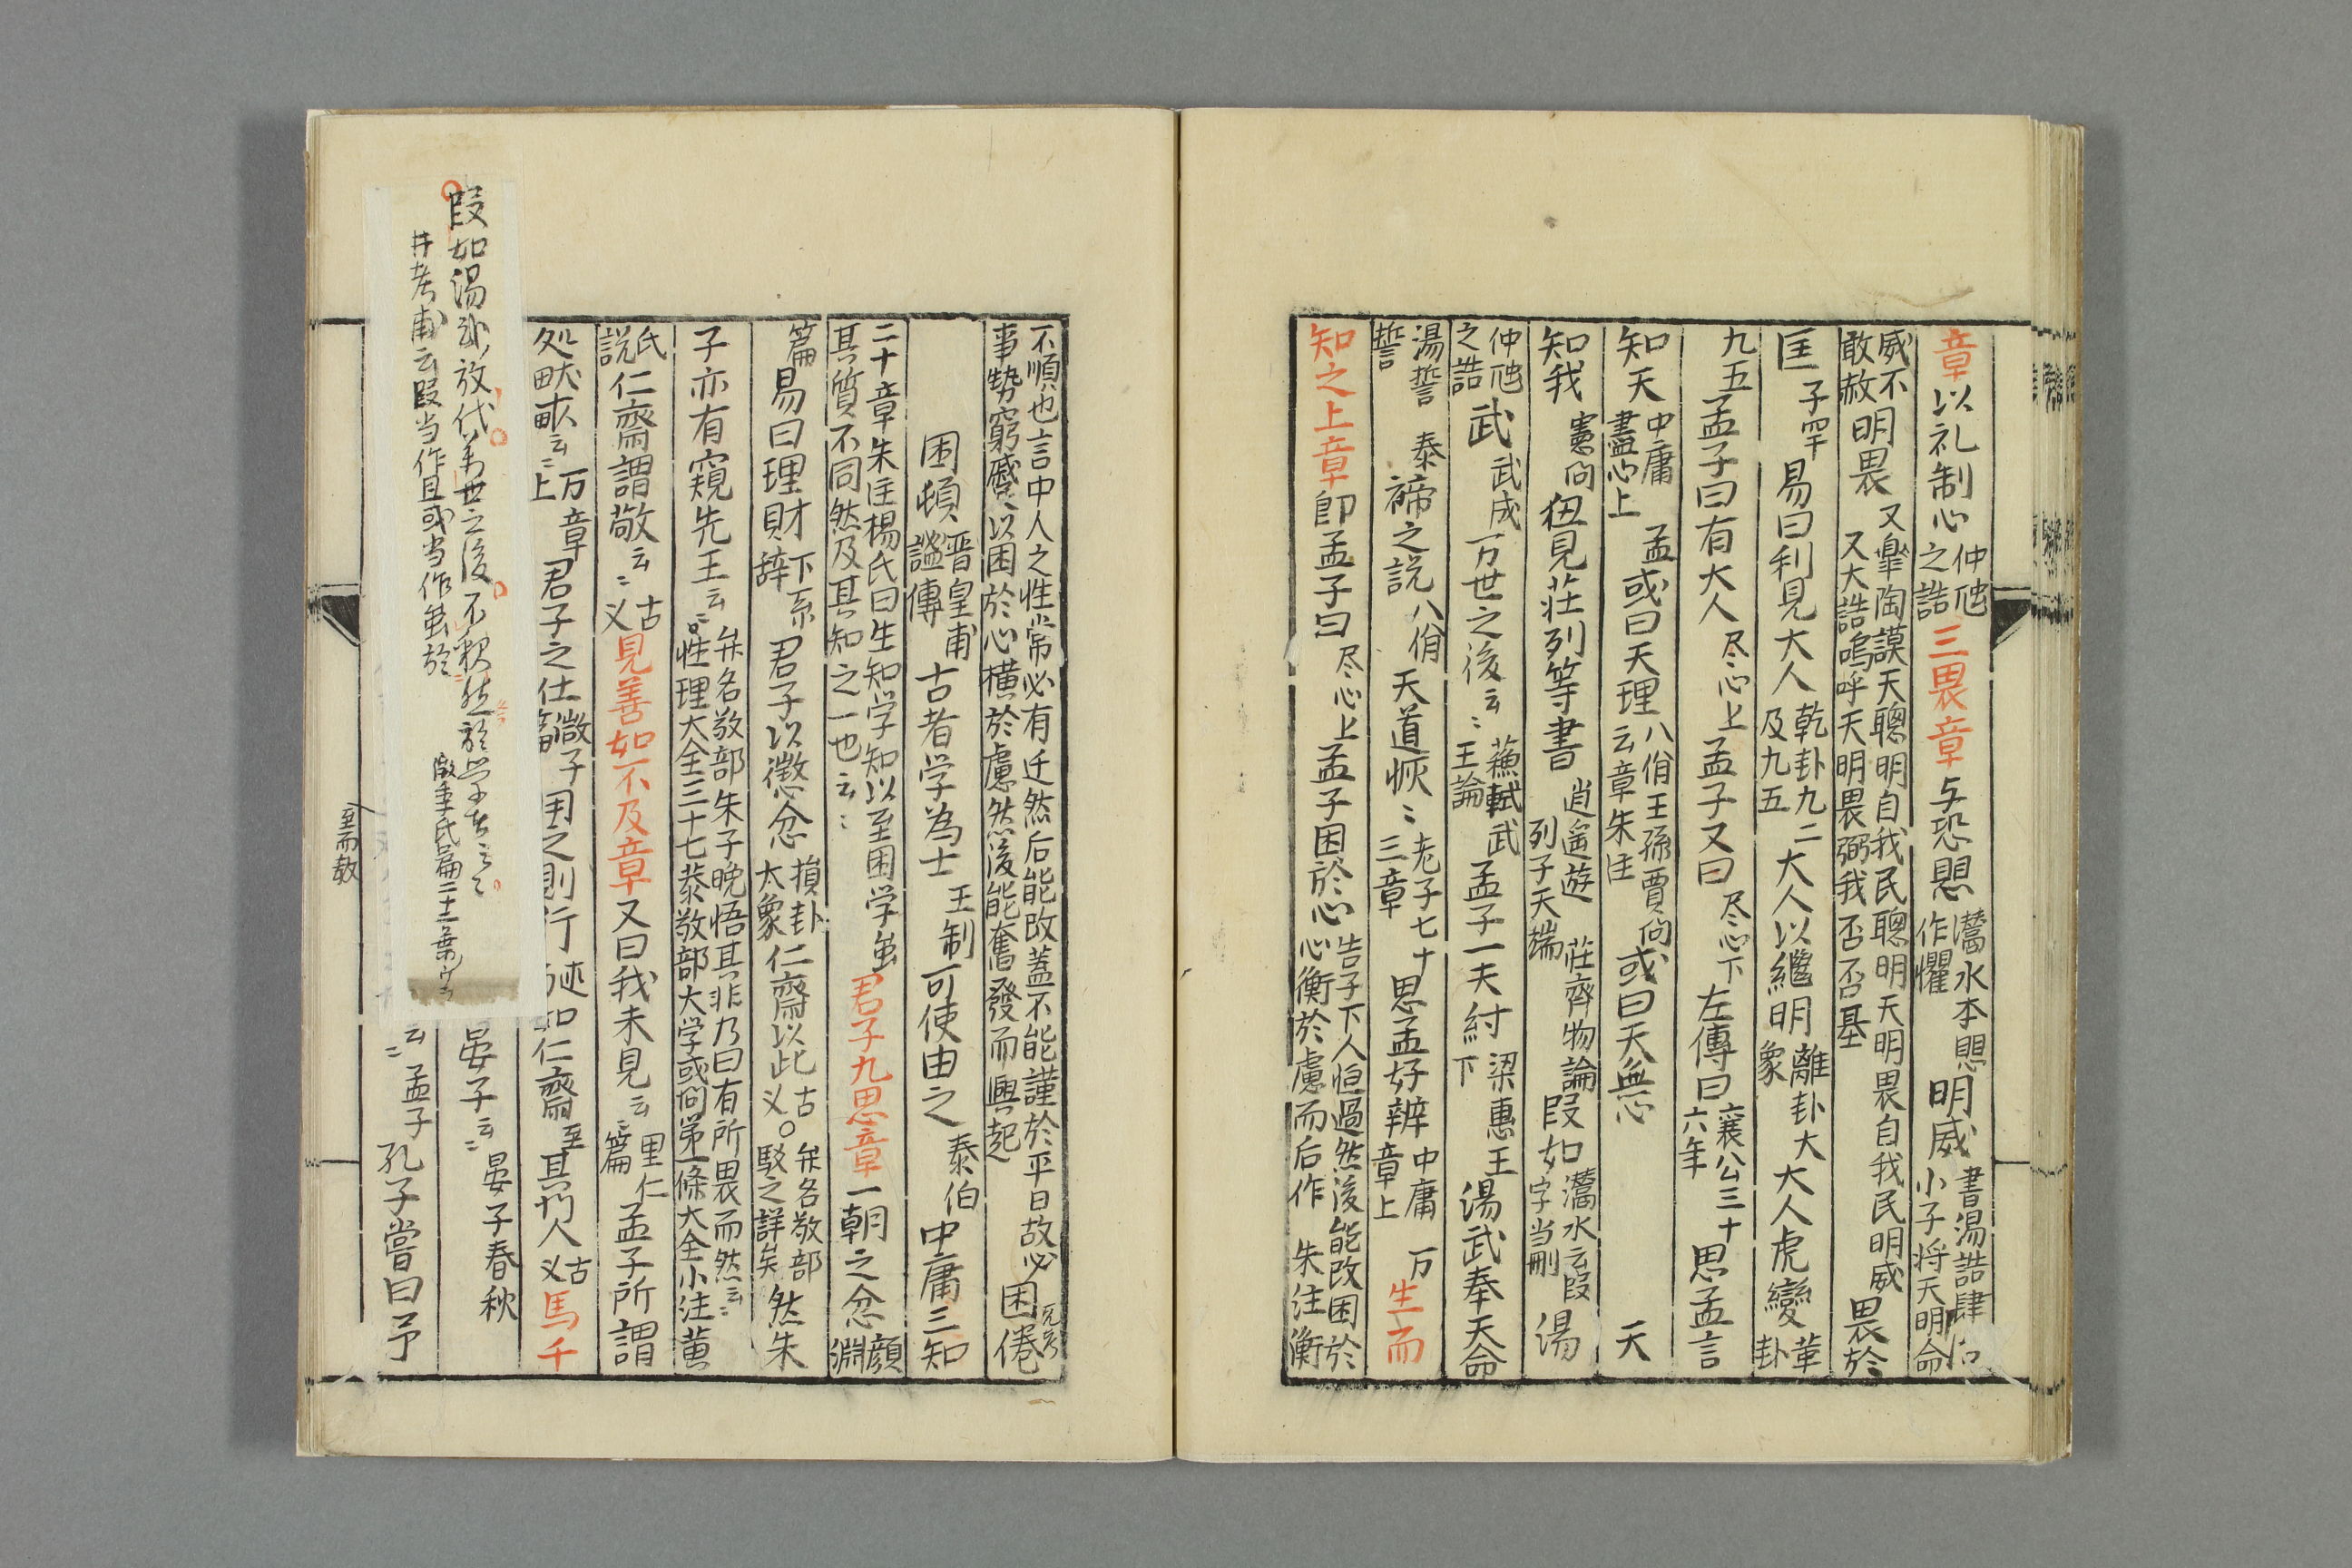 章以礼制心仲虺之誥三畏章与恐愳灊水本愳作懼明威書湯誥肆台小子将天明命
威不敢赦明畏又皐陶謨天聰明自我民聰明天明畏自我民明威又大誥嗚呼天明畏弼我丕丕基畏於
匡子罕易曰利見大人乾卦九二及九五大人以繼明離卦大象大人虎變革卦
九五孟子曰有大人尽心上孟子又曰尽心下左傳曰襄公三十六年思孟言
知天中庸孟盡心上或曰天理八佾王孫賈向云章朱注或曰天無心天
知我憲向伹見莊列等書逍遥遊列子天瑞莊齊物論叚如灊水云叚字当刪湯
仲虺之誥武武成万世之後云〻蘓軾武王論孟子一夫紂梁惠王下湯武奉天命
湯誓泰誓禘之説八佾天道恢〻老子七十三章思孟好辨中庸万章上生而
知之上章卽孟子曰尽心上孟子困於心告子下人恒過然後能改困於心衡於慮而后作朱注衡
不順也言中人之性常必有迁然后能改蓋不能謹於平日故必事勢窮蹙以困於心横於慮然後能奮發而興起困倦
困頓晋皇甫謐傳古者学為士王制可使由之泰伯中庸三知
二十章朱注楊氏曰生知学知以至困学虽其質不同然及其知之一也云〻君子九思章一朝之忿顔淵
篇易曰理財下系辞君子以懲忿損卦大象仁齋以此古义○弁名敬部駁之詳矣然朱
子亦有窺先王云〻弁名敬部朱子晩悟其非乃曰有所畏而然云〻性理大全三十七葉敬部大学或问第一條大全小注黄
氏説仁齋謂敬云〻古义見善如不及章又曰我未見云〻里仁篇孟子所謂
処畎畝云〻万章上君子之仕微子篇用之則行
仁齋至其刋人古义馬千
晏子云〻晏子春秋
云〻孟子孔子嘗曰予
叚如湯武放伐萬世之後不釈然於学者云云
季氏篇二十二葉ウ
井考甫云叚当作且或当作虽於